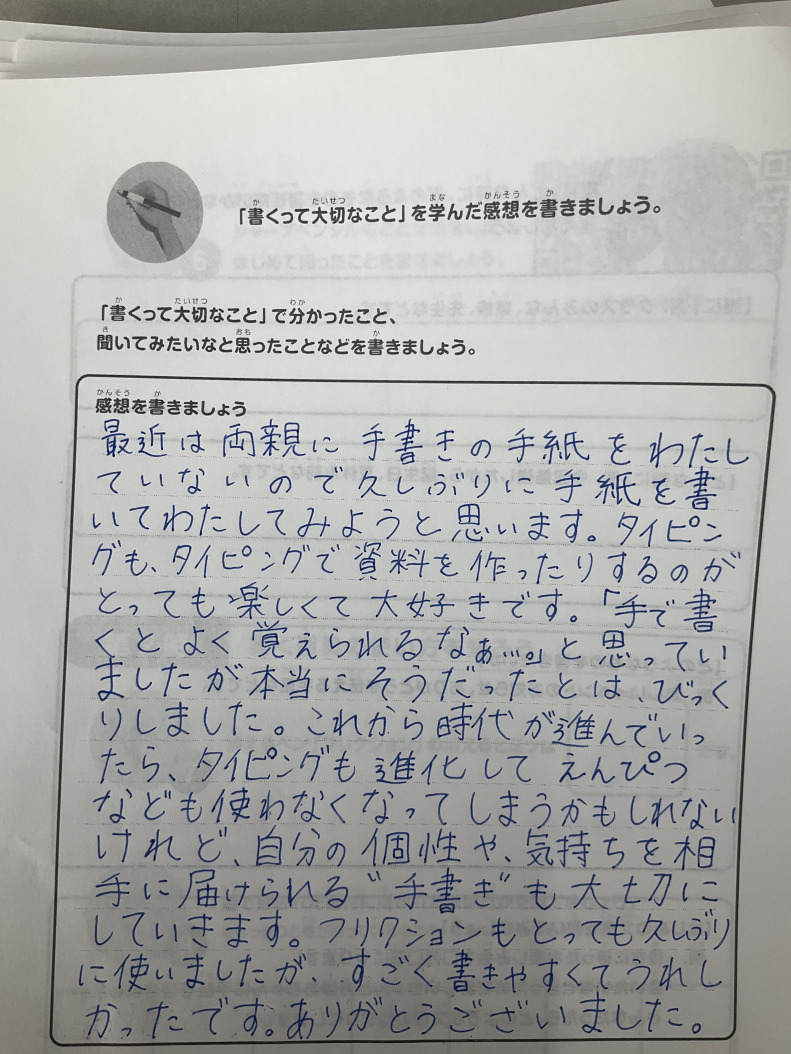 「書くって大切なこと」を学んだ感想を書きましょう。
「書くって大切なこと」で分かったこと、
聞いてみたいなと思ったことなどを書きましょう。
感想を書きましょう
最近は両親に手書きの手紙をわたし
ていないので久しぶりに手紙を書
いてわたしてみようと思います。タイピン
グも、タイピングで資料を作ったりするのが
とっても楽しくて大好きです。「手で書
くとよく覚えられるなぁ…。」と思ってい
ましたが本当にそうだったとは、びっく
りしました。これから時代が進んでいっ
たら、タイピングも進化してえんぴつ
なども使わなくなってしまうかもしれない
けれど、自分の個性や、気持ちを相
手に届けられる"手書き"も大切に
していきます。フリクションもとっても久しぶり
に使いましたが、すごく書きやすくてうれし
かったです。ありがとうございました。